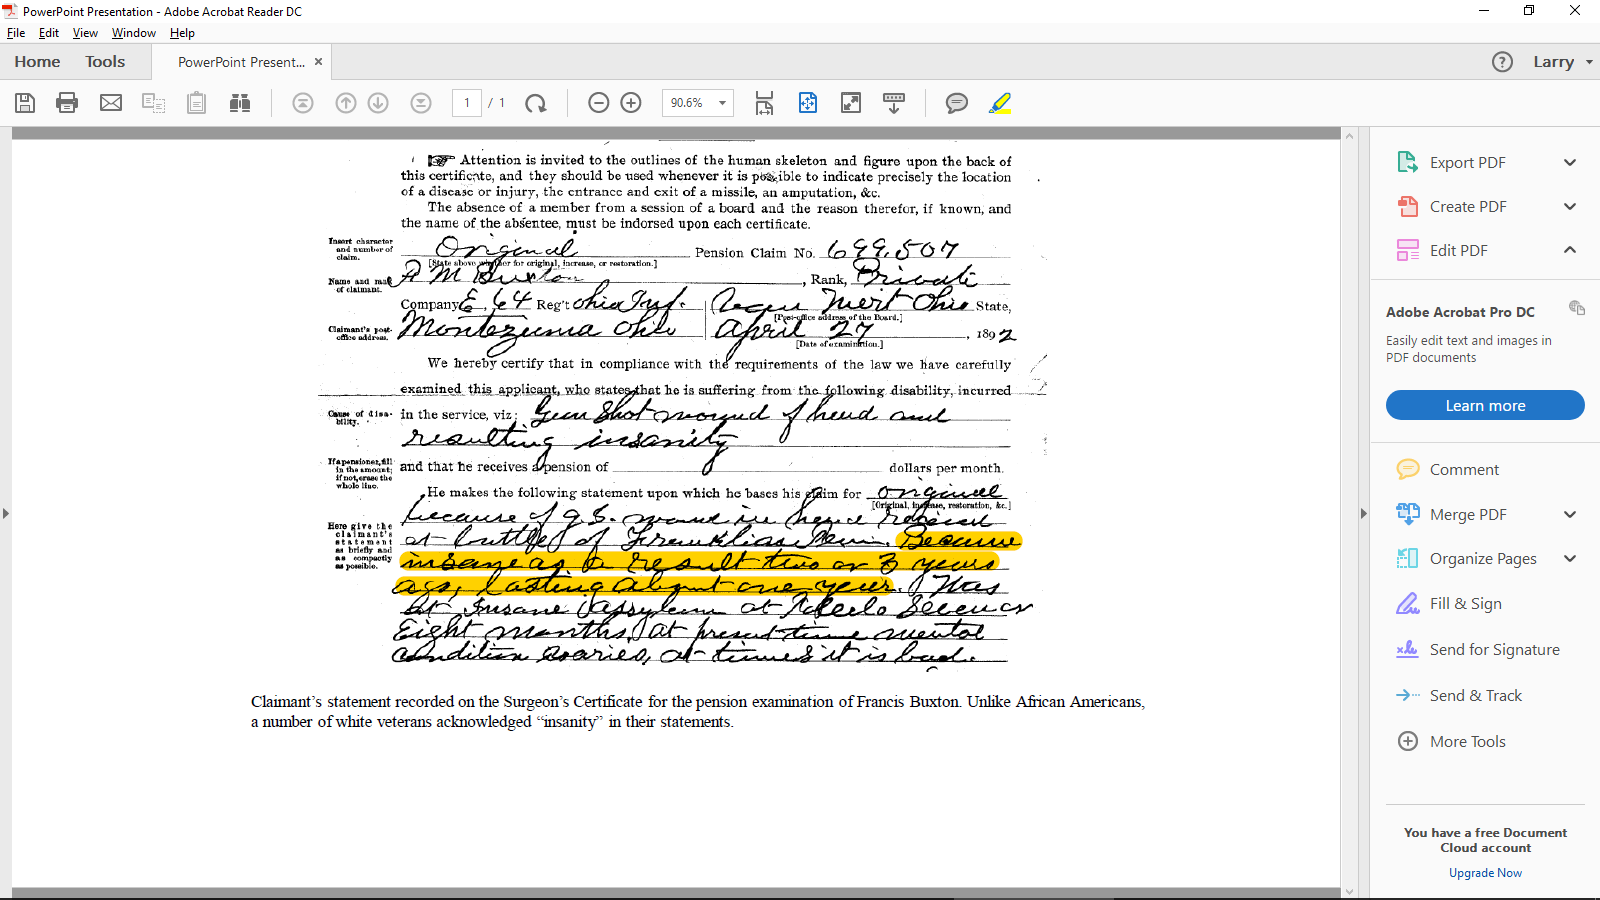 PowerPoint Presentation - Adobe Acrobat Reader DC
File Edit View Window Help
Home Tools PowerPoint Present... × Larry
1 / 1 90.6%
Attention is invited to the outlines of the human skeleton and figure upon the back of
this certificate, and they should be used whenever it is possible to indicate precisely the location
of a disease or injury, the entrance and exit of a missile, an amputation, &c.
The absence of a member from a session of a board and the reason therefor, if known, and
the name of the absentee, must be indorsed upon each certificate.
Insert character and number of claim.
Original Pension Claim No. 699,507
[State above whether for original, increase, or restoration.]
Name and rank of claimant.
M Buxton, Rank, Private
Company E, 64 Reg't Ohio Inf. Ohio State,
[Post-office address of the Board.]
Claimant's post-office address.
Montezuma Ohio April 27, 1892
[Date of examination.]
We hereby certify that in compliance with the requirements of the law we have carefully
examined this applicant, who states that he is suffering from the following disability, incurred
Cause of disability.
in the service, viz: Gun Shot wound of head and
resulting insanity
If a pensioner, fill in the amount; if not, erase the whole line.
and that he receives a pension of dollars per month.
He makes the following statement upon which he bases his claim for original
[Original, increase, restoration, &c.]
Here give the claimant's statement as briefly and as compactly as possible.
because of g.S. wound in head received
at battle of Franklin Tenn. Became
insane as a result two or 3 years
ago, lasting about one year. Was
at Insane Assylum at Toledo
Eight months, at present time mental
condition varies, at times it is bad.
Claimant's statement recorded on the Surgeon's Certificate for the pension examination of Francis Buxton. Unlike African Americans,
a number of white veterans acknowledged "insanity" in their statements.
Export PDF
Create PDF
Edit PDF
Adobe Acrobat Pro DC
Easily edit text and images in
PDF documents
Learn more
Comment
Merge PDF
Organize Pages
Fill & Sign
Send for Signature
Send & Track
More Tools
You have a free Document
Cloud account
Upgrade Now